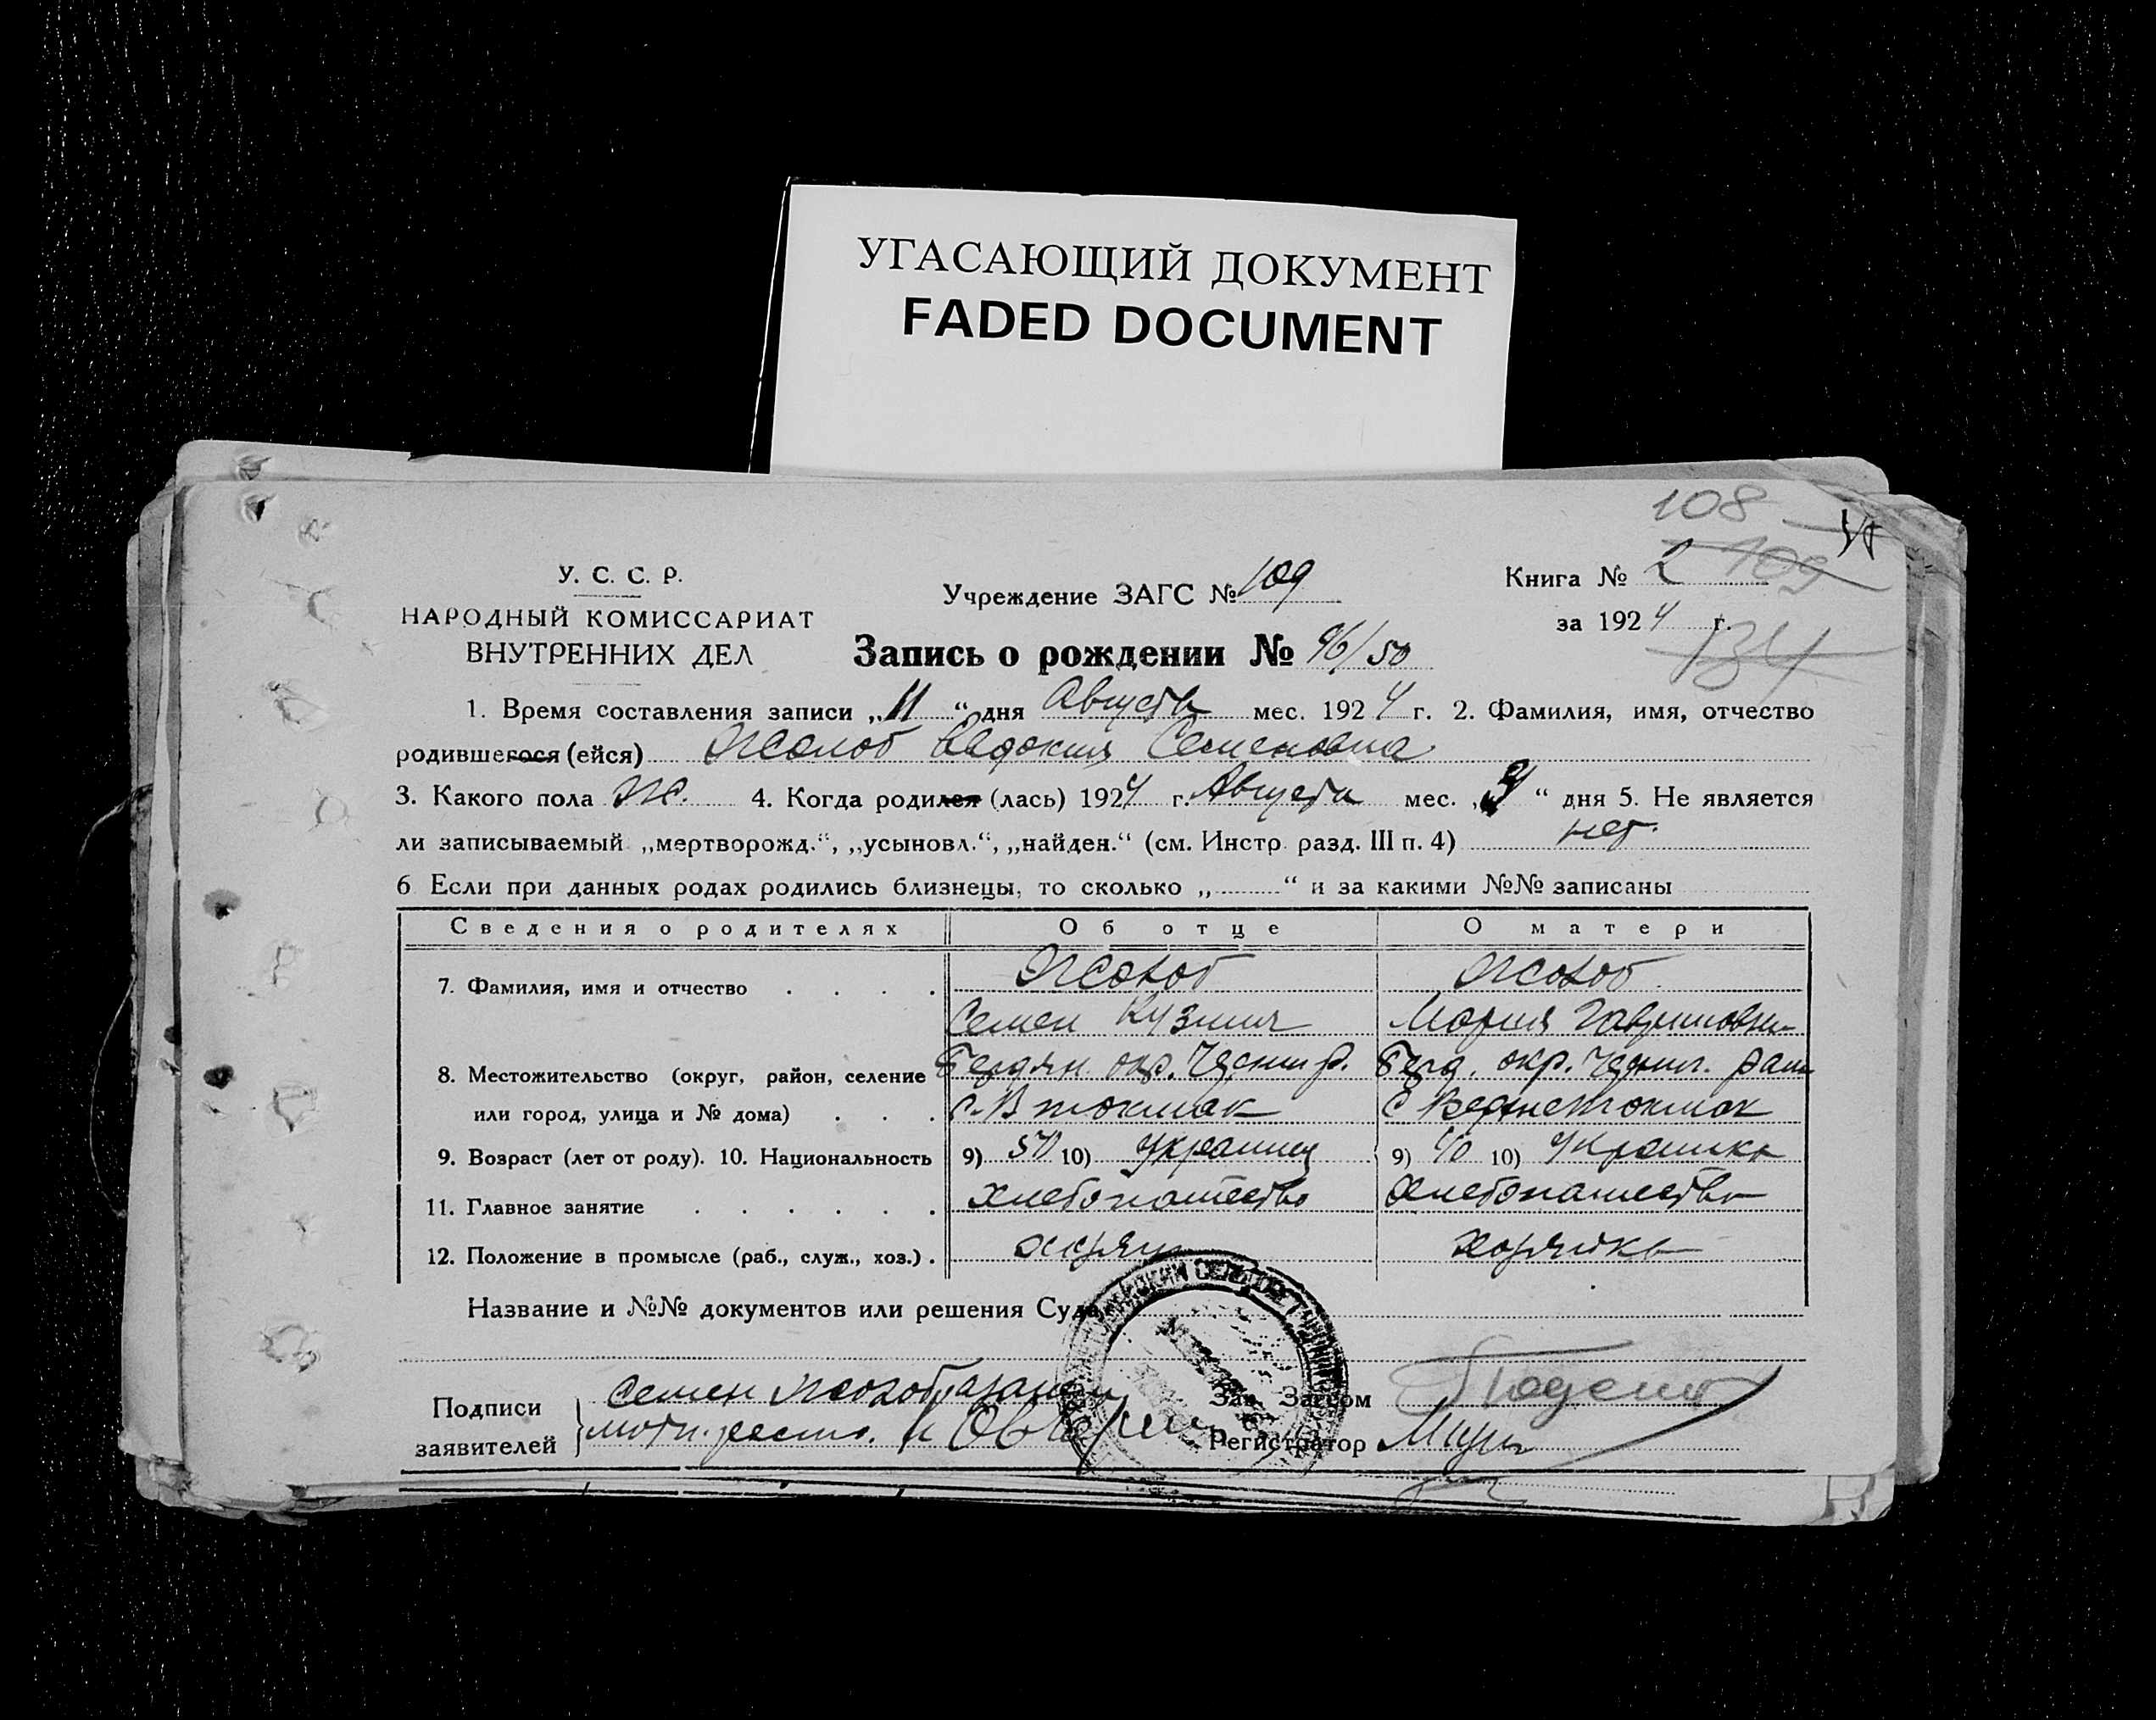 УГАСАЮЩИЙ ДОКУМЕНТ
FADED DOCUMENT
108
109
134
У. С. С. Р.
НАРОДНЫЙ КОМИССАРИАТ
ВНУТРЕННИХ ДЕЛ
Учреждение ЗАГС № 109
Книга № 2
за 1924 г.
Запись о рождении № 96/50
1. Время составления записи „11“ дня Августа мес. 1924 г. 2. Фамилия, имя, отчество
родившегося (ейся) Жолоб Евдокия Семеновна
3. Какого пола Ж. 4. Когда родился (лась) 1924 г. Августа мес. „ “ дня 5. Не является
ли записываемый „мертворожд.“, „усыновл.“, „найден.“ (см. Инстр. разд. III п. 4) нет.
6 Если при данных родах родились близнецы, то сколько „ “ и за какими №№ записаны
Сведения о родителях Об отце О матери
7. Фамилия, имя и отчество Жолоб Жолоб
Семен Кузмич Мария Гавриловна
8. Местожительство (округ, район, селение Бердян. окр. Черниг. Берд. окр. Черниг. рай
или город, улица и № дома) с. В токмак с Верхнетокмак
9. Возраст (лет от роду). 10. Национальность 9) 50 10) Украинец 9) 40 10) Украинка
11. Главное занятие Хлебопашество Хлебопашество
12. Положение в промысле (раб., служ., хоз.) хозяин хозяйка
Название и №№ документов или решения Суда
Подписи Семен Жолоб Зав. Загсом
заявителей Регистратор